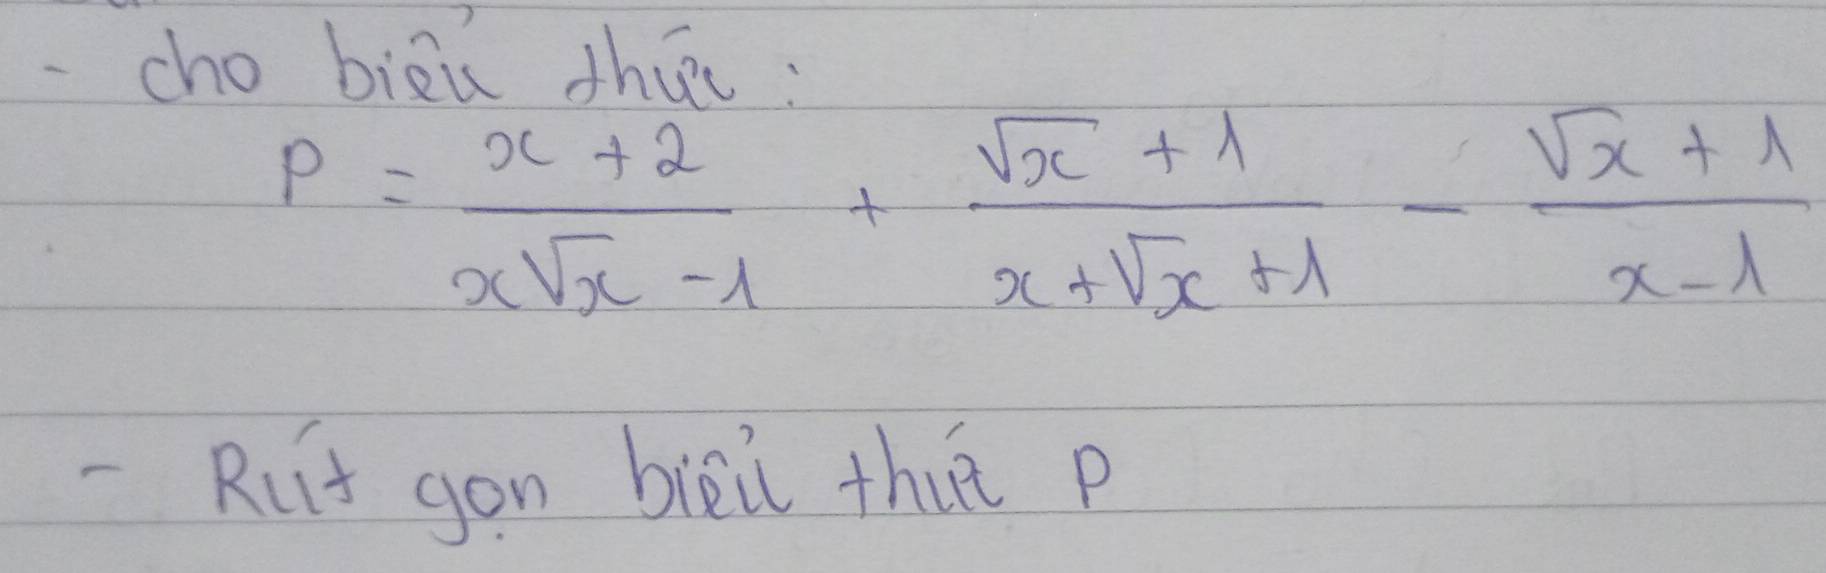 - cho biểu thức :
P = \frac{x + 2}{x\sqrt{x} - 1} + \frac{\sqrt{x} + 1}{x + \sqrt{x} + 1} - \frac{\sqrt{x} + 1}{x - 1}
- Rút gọn biểu thức P